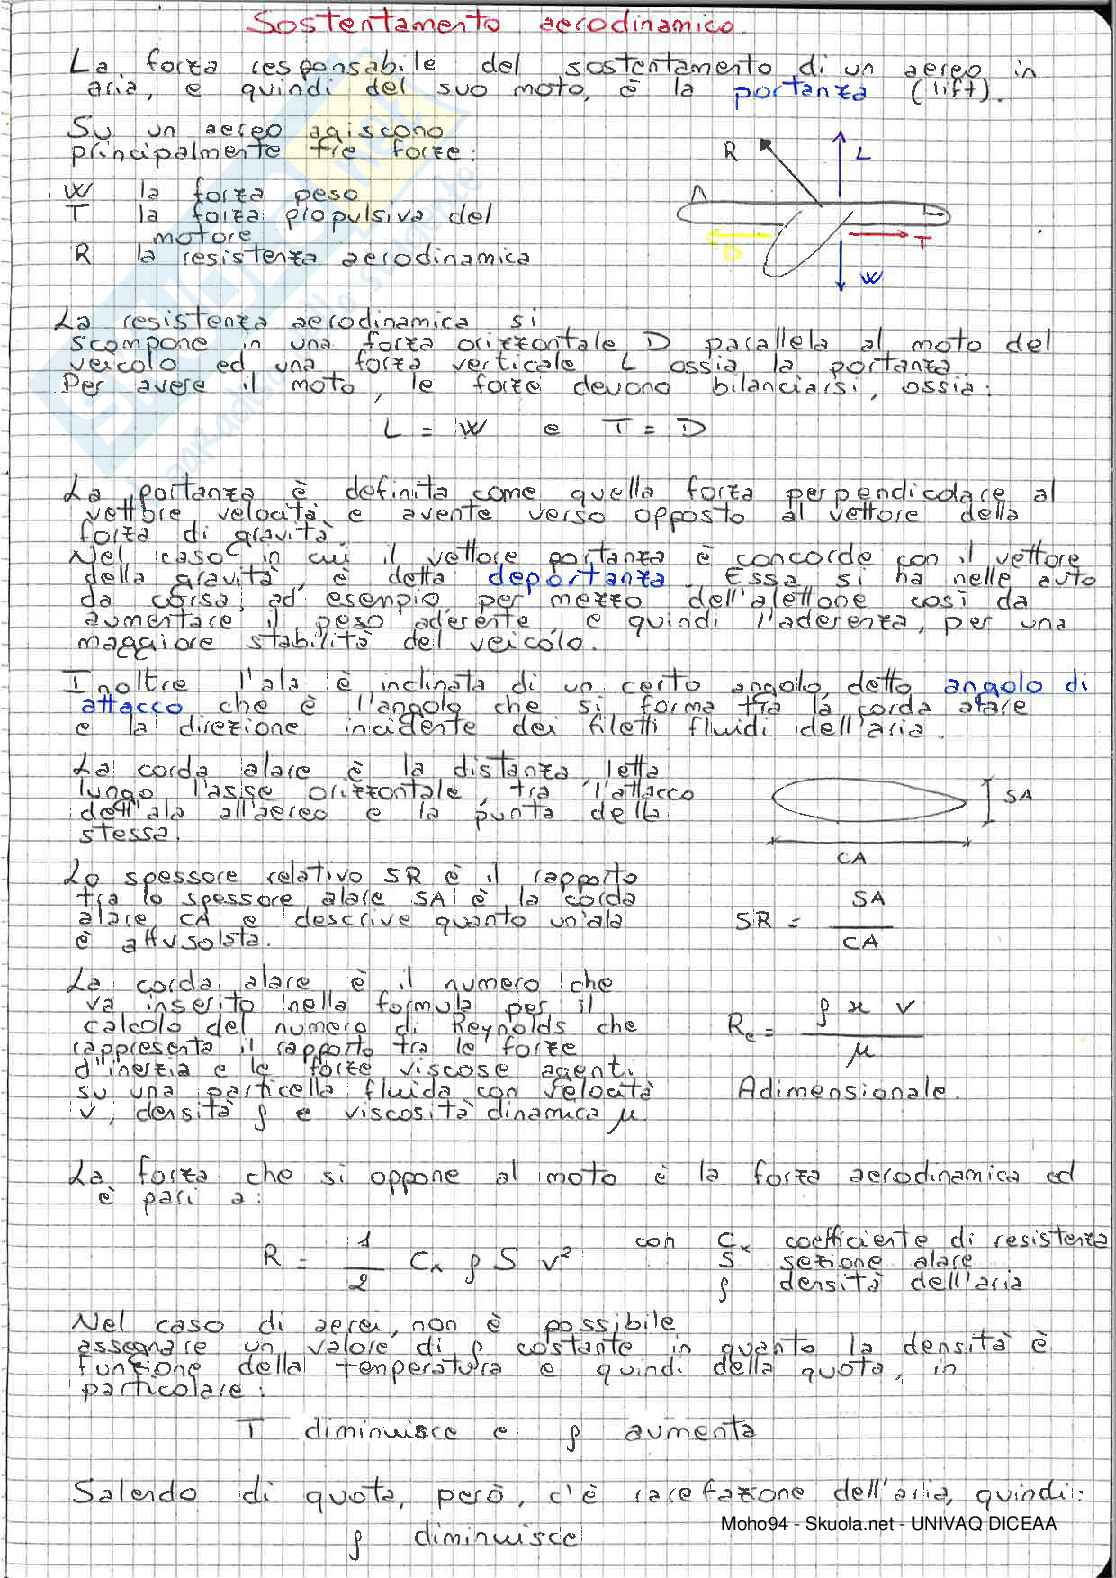 Sostentamento aerodinamico.
La forza responsabile del sostentamento di un aereo in
aria, e quindi del suo moto, è la portanza (lift).
Su un aereo agiscono
principalmente tre forze:
W la forza peso
T la forza propulsiva del
motore
R la resistenza aerodinamica
R
L
D
T
W
La resistenza aerodinamica si
scompone in una forza orizzontale D parallela al moto del
veicolo ed una forza verticale L ossia la portanza.
Per avere il moto, le forze devono bilanciarsi, ossia:
L = W e T = D
La portanza è definita come quella forza perpendicolare al
vettore velocità e avente verso opposto al vettore della
forza di gravità.
Nel caso in cui il vettore portanza è concorde con il vettore
della gravità, è detta deportanza. Essa si ha nelle auto
da corsa, ad esempio, per mezzo dell'alettone così da
aumentare il peso aderente, e quindi l'aderenza, per una
maggiore stabilità del veicolo.
Inoltre l'ala è inclinata di un certo angolo, detto angolo di
attacco che è l'angolo che si forma tra la corda alare
e la direzione incidente dei filetti fluidi dell'aria.
La corda alare è la distanza, letta
lungo l'asise orizzontale, tra l'attacco
dell'ala all'aereo e la punta della
stessa.
SA
CA
Lo spessore relativo SR è il rapporto
tra lo spessore alare SA è la corda
alare CA e descrive quanto un'ala
è affusolata.
SR = SA / CA
La corda alare è il numero che
va inserito nella formula per il
calcolo del numero di Reynolds che
rappresenta il rapporto tra le forze
d'inerzia e le forze viscose agenti
su una particella fluida con velocità
v, densità ρ e viscosità dinamica μ.
Re = ρ x v / μ
Adimensionale.
La forza che si oppone al moto è la forza aerodinamica ed
è pari a:
R = 1/2 Cx ρ S v² con Cx coefficiente di resistenza
S sezione alare
ρ densità dell'aria
Nel caso di aerei, non è possibile
assegnare un valore di ρ costante in quanto la densità è
funzione della temperatura e quindi della quota, in
particolare:
T diminuisce e ρ aumenta
Salendo di quota, però, c'è rarefazione dell'aria, quindi:
Moho94 - Skuola.net - UNIVAQ DICEAA
ρ diminuisce